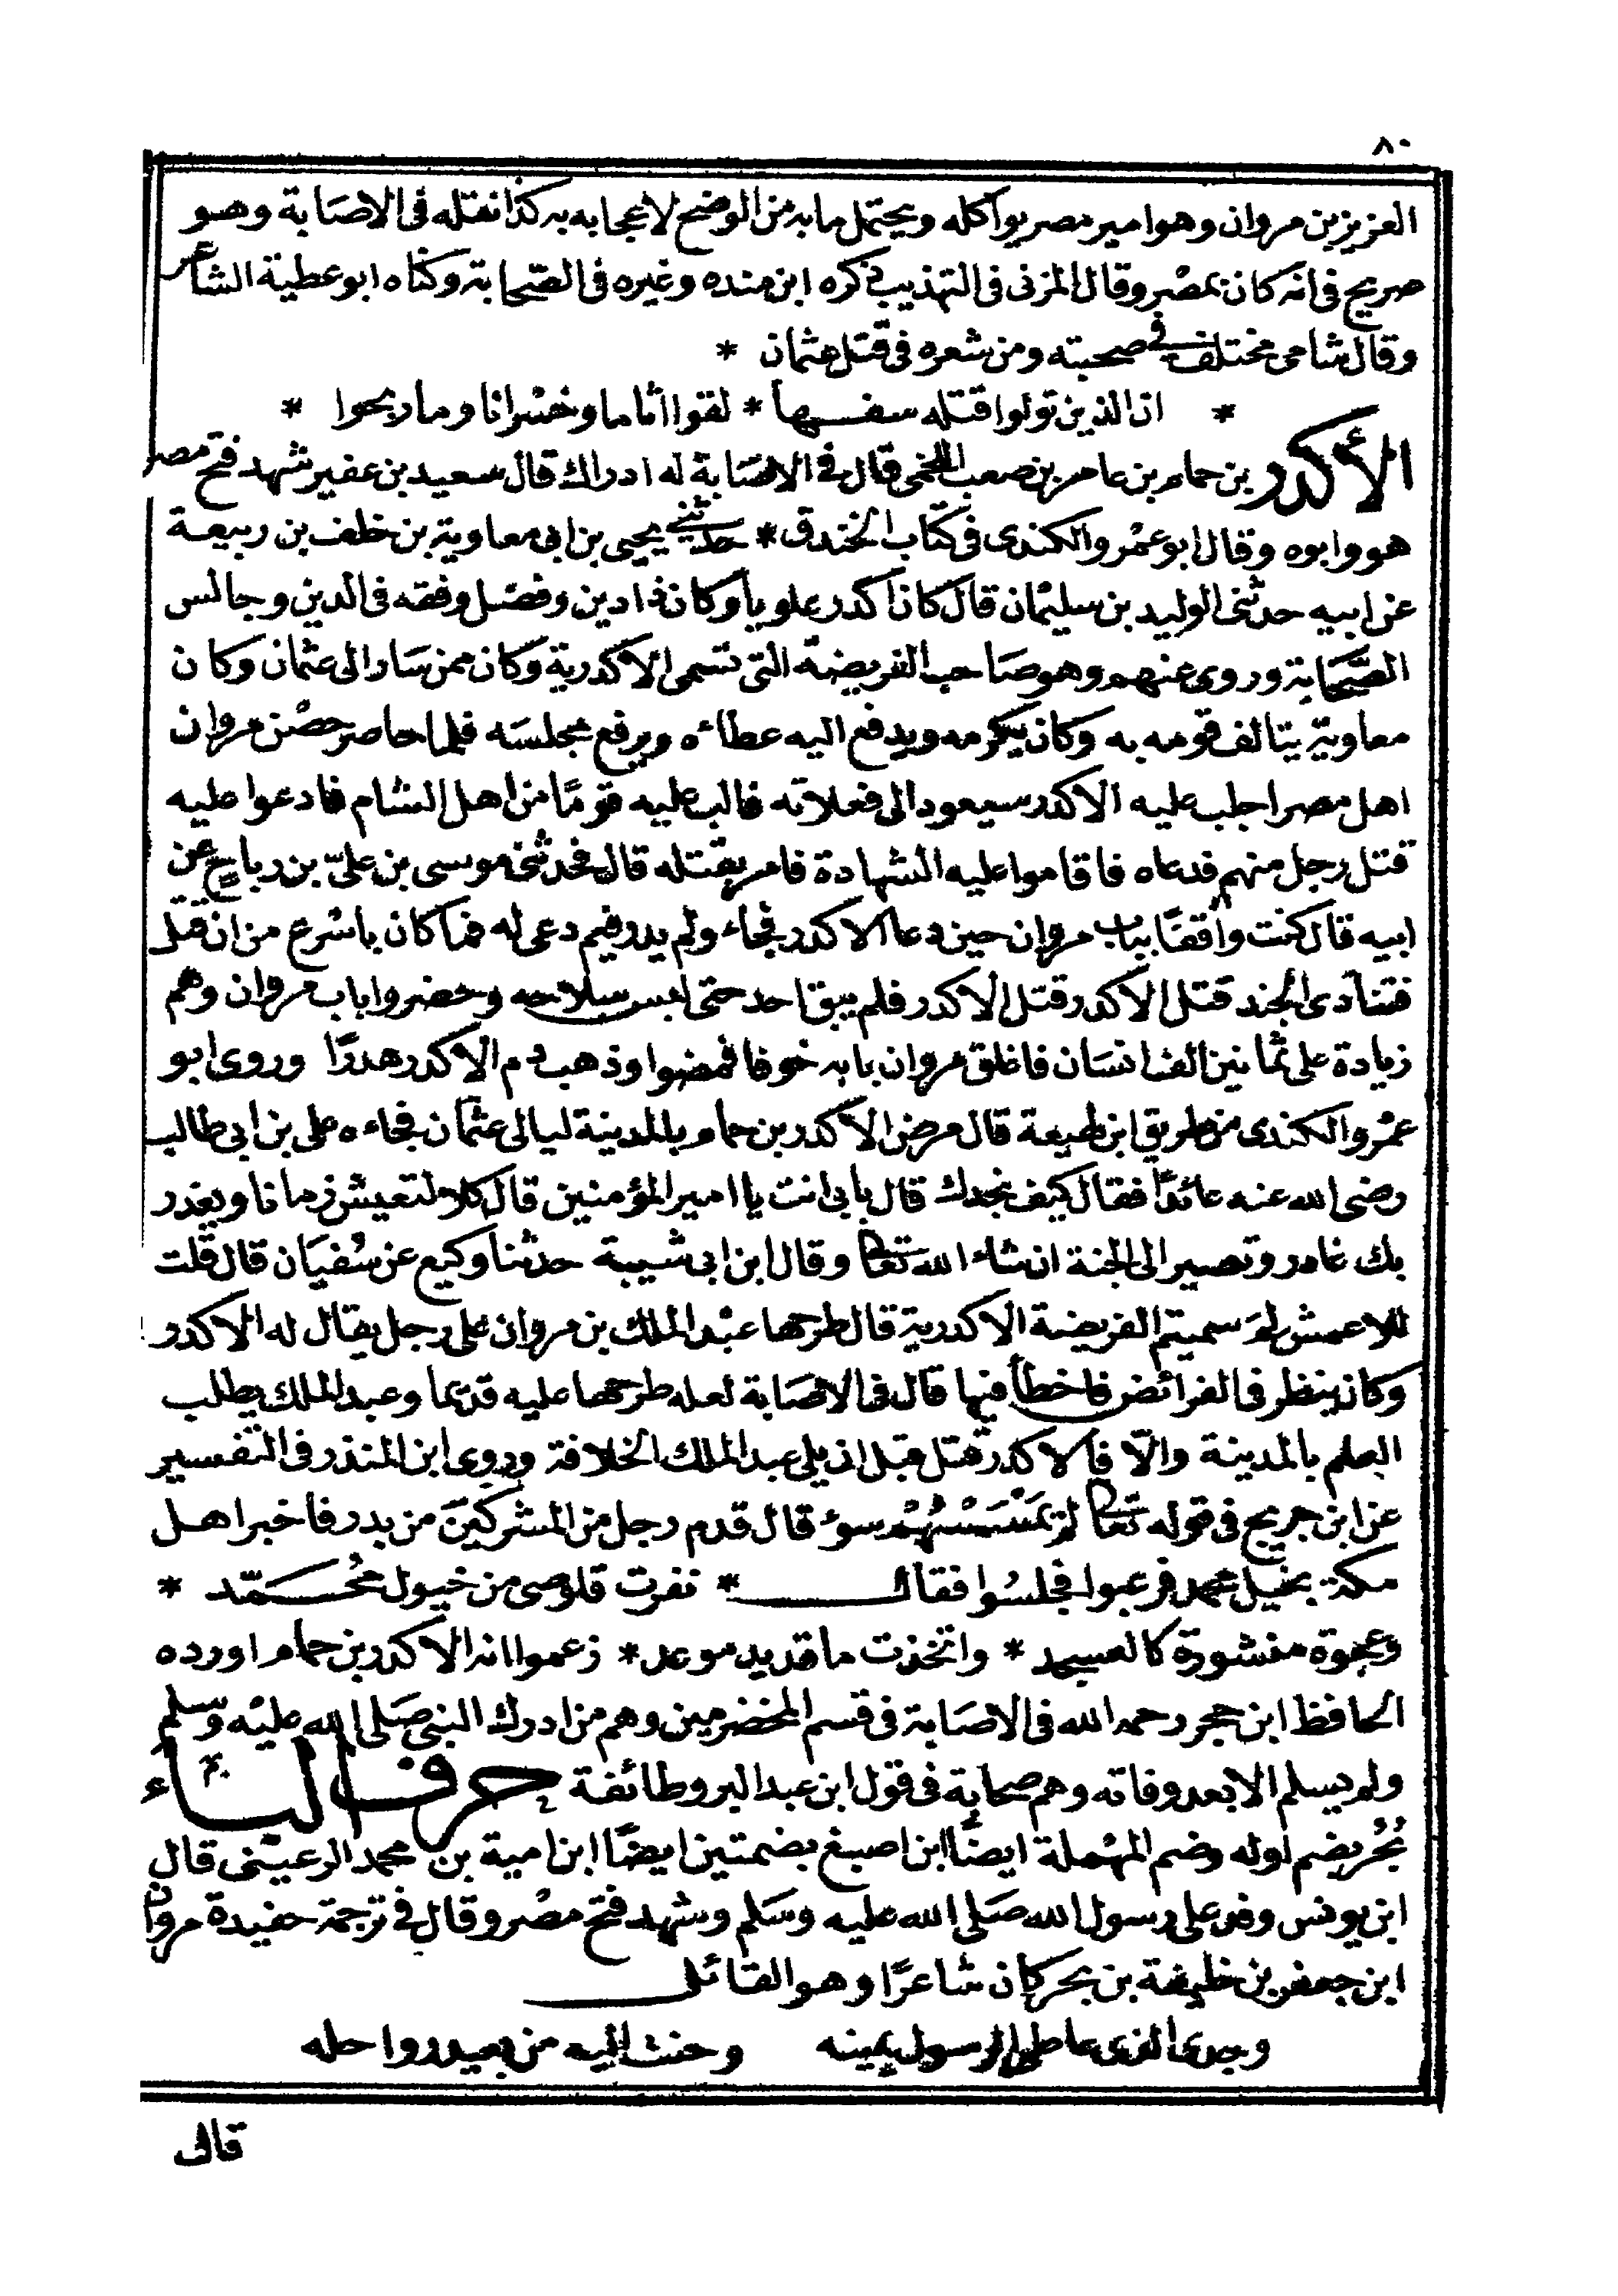 ٨٠
العزيز بن مروان وهو امير مصر يواكله ويحتمل ما به من الوضح لاعجابه به كذا نقله فى الاصابة وهو
صريح فى انه كان بمصر وقال المزنى فى التهذيب ذكره ابن منده وغيره فى الصحابة وكناه ابو عطية الشاعر
وقال شامى مختلف فى صحبته ومن شعره فى قتل عثمان *
* ان الذين تولوا قتله سفها * لقوا اثاما وخسرانا وما ربحوا *
الأكدر بن حمام بن عامر بن صعب اللخمى قال فى الاصابة له ادراك قال سعيد بن عفير شهد فتح مصر
هو وابوه وقال ابو عمرو الكندى فى كتاب الخندق * حدثنى يحيى بن ابى معاوية بن خلف بن ربيعة
عن ابيه حدثنى الوليد بن سليمان قال كان اكدر علويا وكان ذا دين وفضل وفقه فى الدين وجالس
الصحابة وروى عنهم وهو صاحب الفريضة التى تسمى الاكدرية وكان ممن سار الى عثمان وكان
معاوية يتالف قومه به وكان يكرمه ويدفع اليه عطاءه ويرفع مجلسه فلما حاصر حصن مروان
اهل مصر اجلب عليه الاكدر سيعود الى فعلاته فالب عليه قومًا من اهل الشام فادعوا عليه
قتل رجل منهم فدعاه فاقاموا عليه الشهادة فامر بقتله قال فحدثنى موسى بن علىّ بن رباح عن
ابيه قال كنت واقفًا بباب مروان حين دعا الاكدر فجاء ولم يدر فيم دعى له فما كان باسرع من ان قتل
فتنادى الجند قتل الاكدر قتل الاكدر فلم يبق احد حتى لبس سلاحه وحضروا باب مروان وهم
زيادة على ثمانين الف انسان فاغلق مروان بابه خوفا فمضوا وذهب دم الاكدر هدرًا وروى ابو
عمرو الكندى من طريق ابن لهيعة قال مرض الاكدر بن حمام بالمدينة ليالى عثمان فجاءه على بن ابى طالب
رضى الله عنه عائدًا فقال كيف نجدك قال بابى انت يا امير المؤمنين قال كلا لتعيش زمانا ويغدر
بك غادر وتصير الى الجنة ان شاء الله تعالى وقال ابن ابى شيبة حدثنا وكيع عن سُفيَان قال قلت
للاعمش لم سميتم الفريضة الاكدرية قال طرحها عبد الملك بن مروان على رجل يقال له الاكدر
وكان ينظر فى الفرائض فاخطأ فيها قال فى الاصابة لعله طرحها عليه قديما وعبد الملك يطلب
العلم بالمدينة والّا فالاكدر قتل قبل ان يلى عبد الملك الخلافة وروى ابن المنذر فى التفسير
عن ابن جريج فى قوله تعالى لم يَمْسَسْهُمْ سوء قال قدم رجل من المشركين من بدر فاخبر اهل
مكة بخيل محمد فرعبوا فجلسُوا فقال * نفرت قلوصى من خيول محُمّد *
وعجوة منشورة كالعسجد * واتخذت ما قديد موعد * زعموا انه الاكدر بن حمام اورده
الحافظ ابن حجر رحمه الله فى الاصابة فى قسم المخضرمين وهم من ادرك النبى صَلى الله عليْه وَسلم
ولم يسلم الا بعد وفاته وهم صحابة فى قول ابن عبد البر وطائفة حرف الباء
بُحُر بضم اوله وضم المهملة ايضًا ابن اصبغ بضمتين ايضًا ابن امية بن محمد الرعينى قال
ابن يونس وفد على رسول الله صَلى الله عليه وسَلم وشهد فتح مصْر وقال فى ترجمة حفيدة مروان
ابن جعفر بن خليفة بن بحر كان شاعرًا وهو القائل
وجدى الذى عاطى الرسول يمينه وحنت اليه من بعيد رواحله
قال